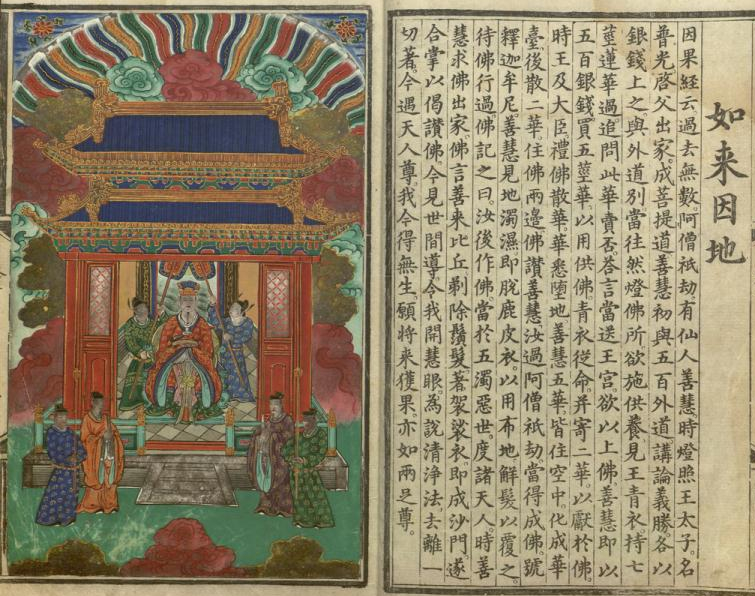 如来因地
因果經云過去無數阿僧祇劫有仙人善慧時燈照王太子名
普光啓父出家成菩提道善慧初與五百外道講論義勝各以
銀錢上之與外道別當往然燈佛所欲施供養見王青衣持七
莖蓮華過追問此華賣否荅言當送王宮欲以上佛善慧即以
五百銀錢買五莖華以用供佛青衣從命并寄二華以獻於佛
時王及大臣禮佛散華華悉墮地善慧五華皆住空中化成華
臺後散二華住佛兩邊佛讚善慧汝過阿僧祇劫當得成佛號
釋迦牟尼善慧見地濁濕即脫鹿皮衣以用布地解髮以覆之
待佛行過佛記之曰汝後作佛當於五濁惡世度諸天人時善
慧求佛出家佛言善来比丘剃除鬚髮著袈裟衣即成沙門遂
合掌以偈讚佛今見世間導令我開慧眼為說清淨法去離一
切著今遇天人尊我今得無生願將来獲果亦如兩足尊